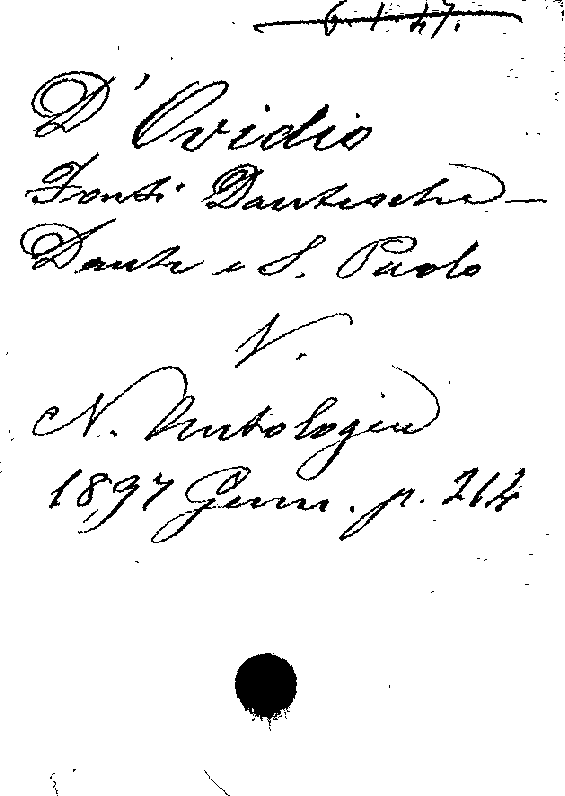 6. 1. 47.
D'Ovidio
Fonti Dantesche —
Dante e S. Paolo
V.
N. Antologia
1897 Genn. p. 214